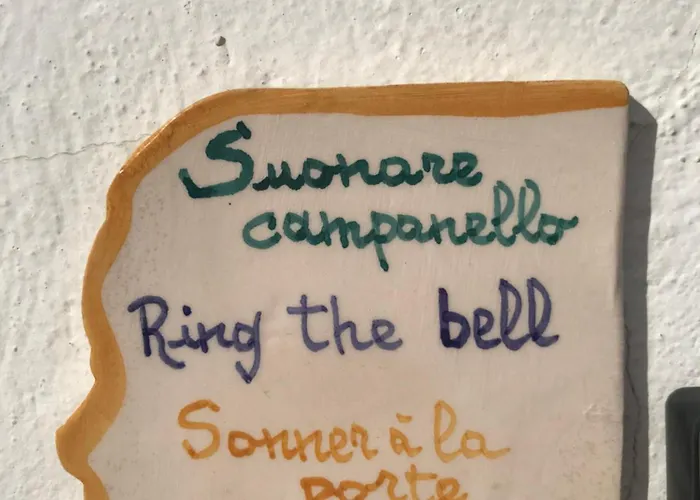 Suonare
campanello
Ring the bell
Sonner à la
porte